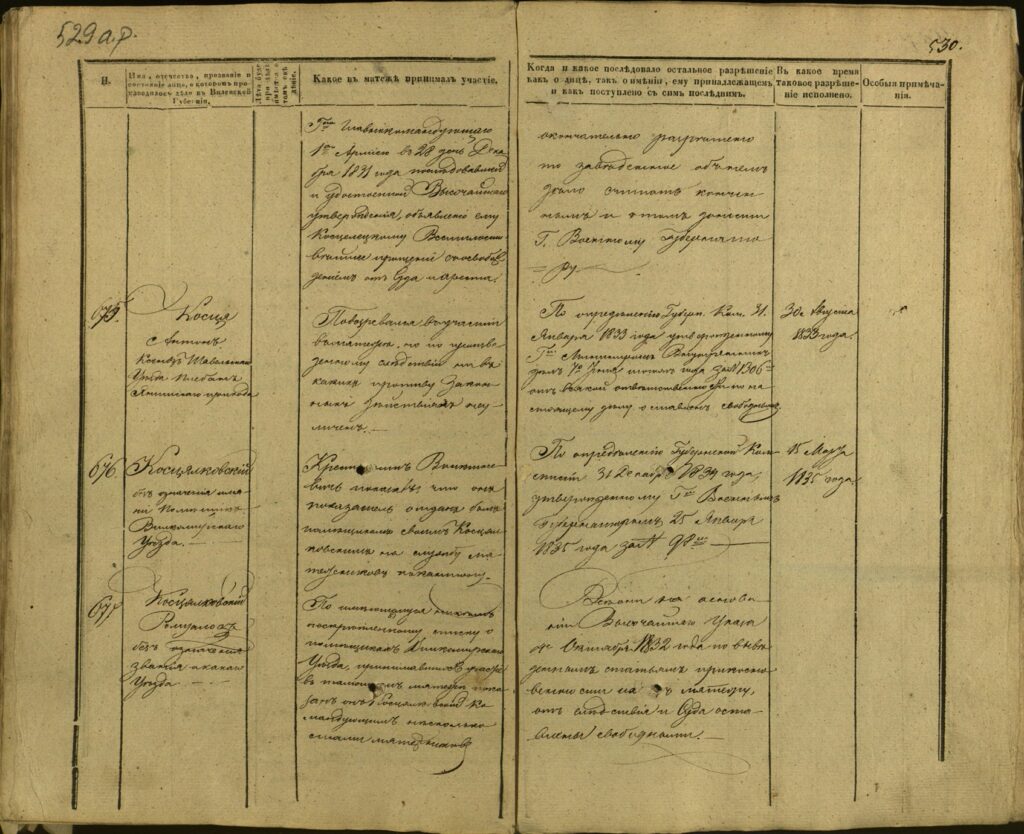 529 а.р.
530.
Н.
Имя, отчество, прозваніе и
состояніе лица, о которомъ про-
изводилось дѣло въ Виленской
Губерніи,
Какое въ мятежѣ принималъ участіе.
Когда и какое послѣдовало остальное разрѣшеніе
какъ о лицѣ, такъ о имѣніи, ему принадлежащемъ
и как поступлено съ симъ послѣднимъ.
Въ какое время
таковое разрѣше-
ніе исполнено.
Особыя примѣча-
нія.
Гмъ Главнокомандующаго
1ою Арміею въ 28 день Дека-
бря 1831 года послѣдовавшей
и удостоенной Высочайшаго
утвержденія, объявлено ему
Косцелецкому Всемилости-
вѣйшее прощеніе съ освобож-
деніемъ отъ Суда и ареста.
окончательно разрѣшено
то заведенное объ немъ
дѣло считать кончен-
нымъ и о томъ донести
Г. Военному Губернато-
ру
675.
Косця
Антонъ
Ксендзъ Шавельскаго
Уѣзда
прихода
Подозревался въ участіи
въ мятежѣ, но по произве-
денному слѣдствію ни въ
какихъ противу Закон-
ныхъ дѣйствіяхъ не у-
личенъ.
По опредѣленію Губерн. Ком. 31.
Января 1833 года утвержденному
Гмъ Министромъ Внутреннихъ
дѣлъ 7 Іюня того года за N 1306
отъ всякой отвѣтственности по на-
стоящему дѣлу оставленъ свободнымъ.
30го Августа
1833 года.
676
Косцялковскій
безъ означенія име-
ни Помѣщикъ
Вилкомирскаго
Уѣзда.
Крестьянинъ
показалъ что онъ
отданъ былъ
помѣщикомъ своимъ Косцял-
ковскимъ на службу мя-
тежниковъ
По опредѣленію Губернской Ком-
мисіи 31 Декабря 1834 года,
утвержденному Гмъ Военнымъ
Губернаторомъ 25 Января
1835 года за N 98
15 Марта
1835 года.
677
Косцялковскій
Ромуальдъ
безъ означенія
званія и какого
Уѣзда
По имеющемуся
списку о
помѣщикахъ Вилкомирскаго
Уѣзда, принимавшихъ участіе
въ тамошнемъ мятежѣ пока-
занъ онъ Косцялковскій Ко-
мандующимъ несколько
стами мятежниковъ
на основа-
ніи Высочайшаго Указа
4го Октября 1832 года по выве-
деннымъ статьямъ прикосно-
венности къ мятежу,
отъ слѣдствія и Суда оста-
влены свободными.